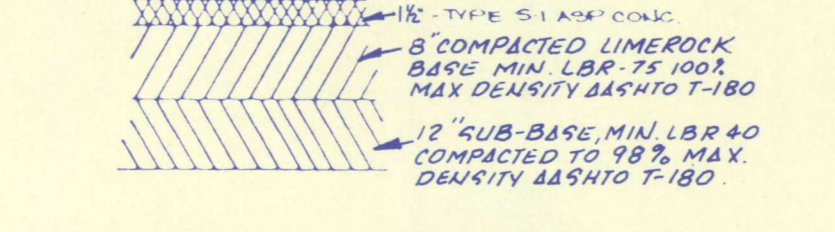 1½" - TYPE S-1 ASP CONC.
8" COMPACTED LIMEROCK
BASE MIN. LBR-75 100%
MAX DENSITY AASHTO T-180
12" SUB-BASE, MIN. LBR 40
COMPACTED TO 98% MAX.
DENSITY AASHTO T-180.